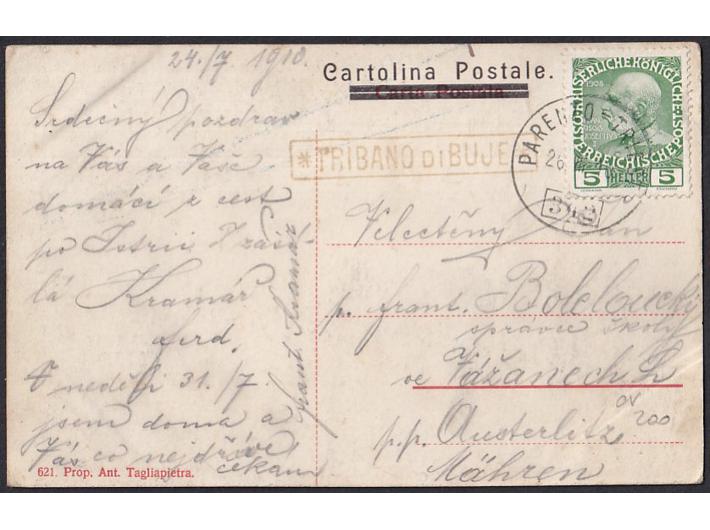 24./7 1910.
Srdečný pozdrav
na Vás a Vaše
domácí z cest
po Istrii Zasí-
lá Kramář
ferd.
V neděli 31./7
jsem doma a
Vás co nejdříve
čekám
frant. Kramář
Cartolina Postale.
Carta Postala
*TRIBANO di BUJE
PARENZO
26
KAISERLICHE KÖNIGLICHE
ÖSTERREICHISCHE POST
1908
5 HELLER 5
Velectěný Pan
p. frant. Boleloucký
správce školy
ve Vážanech
p.p. Austerlitz
Mähren
200
621. Prop. Ant. Tagliapietra.